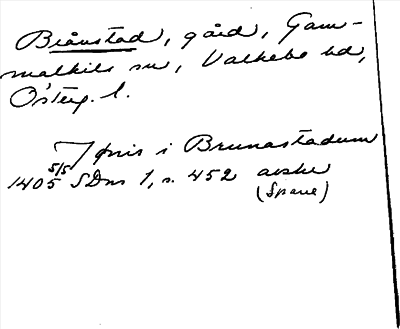 Brånstad, gård, Gam-
malkils sn, Valkebo hd,
Österg. l.
i Brunastadum
1405 5/5 SDns 1, s. 452 avskr
(Spare)